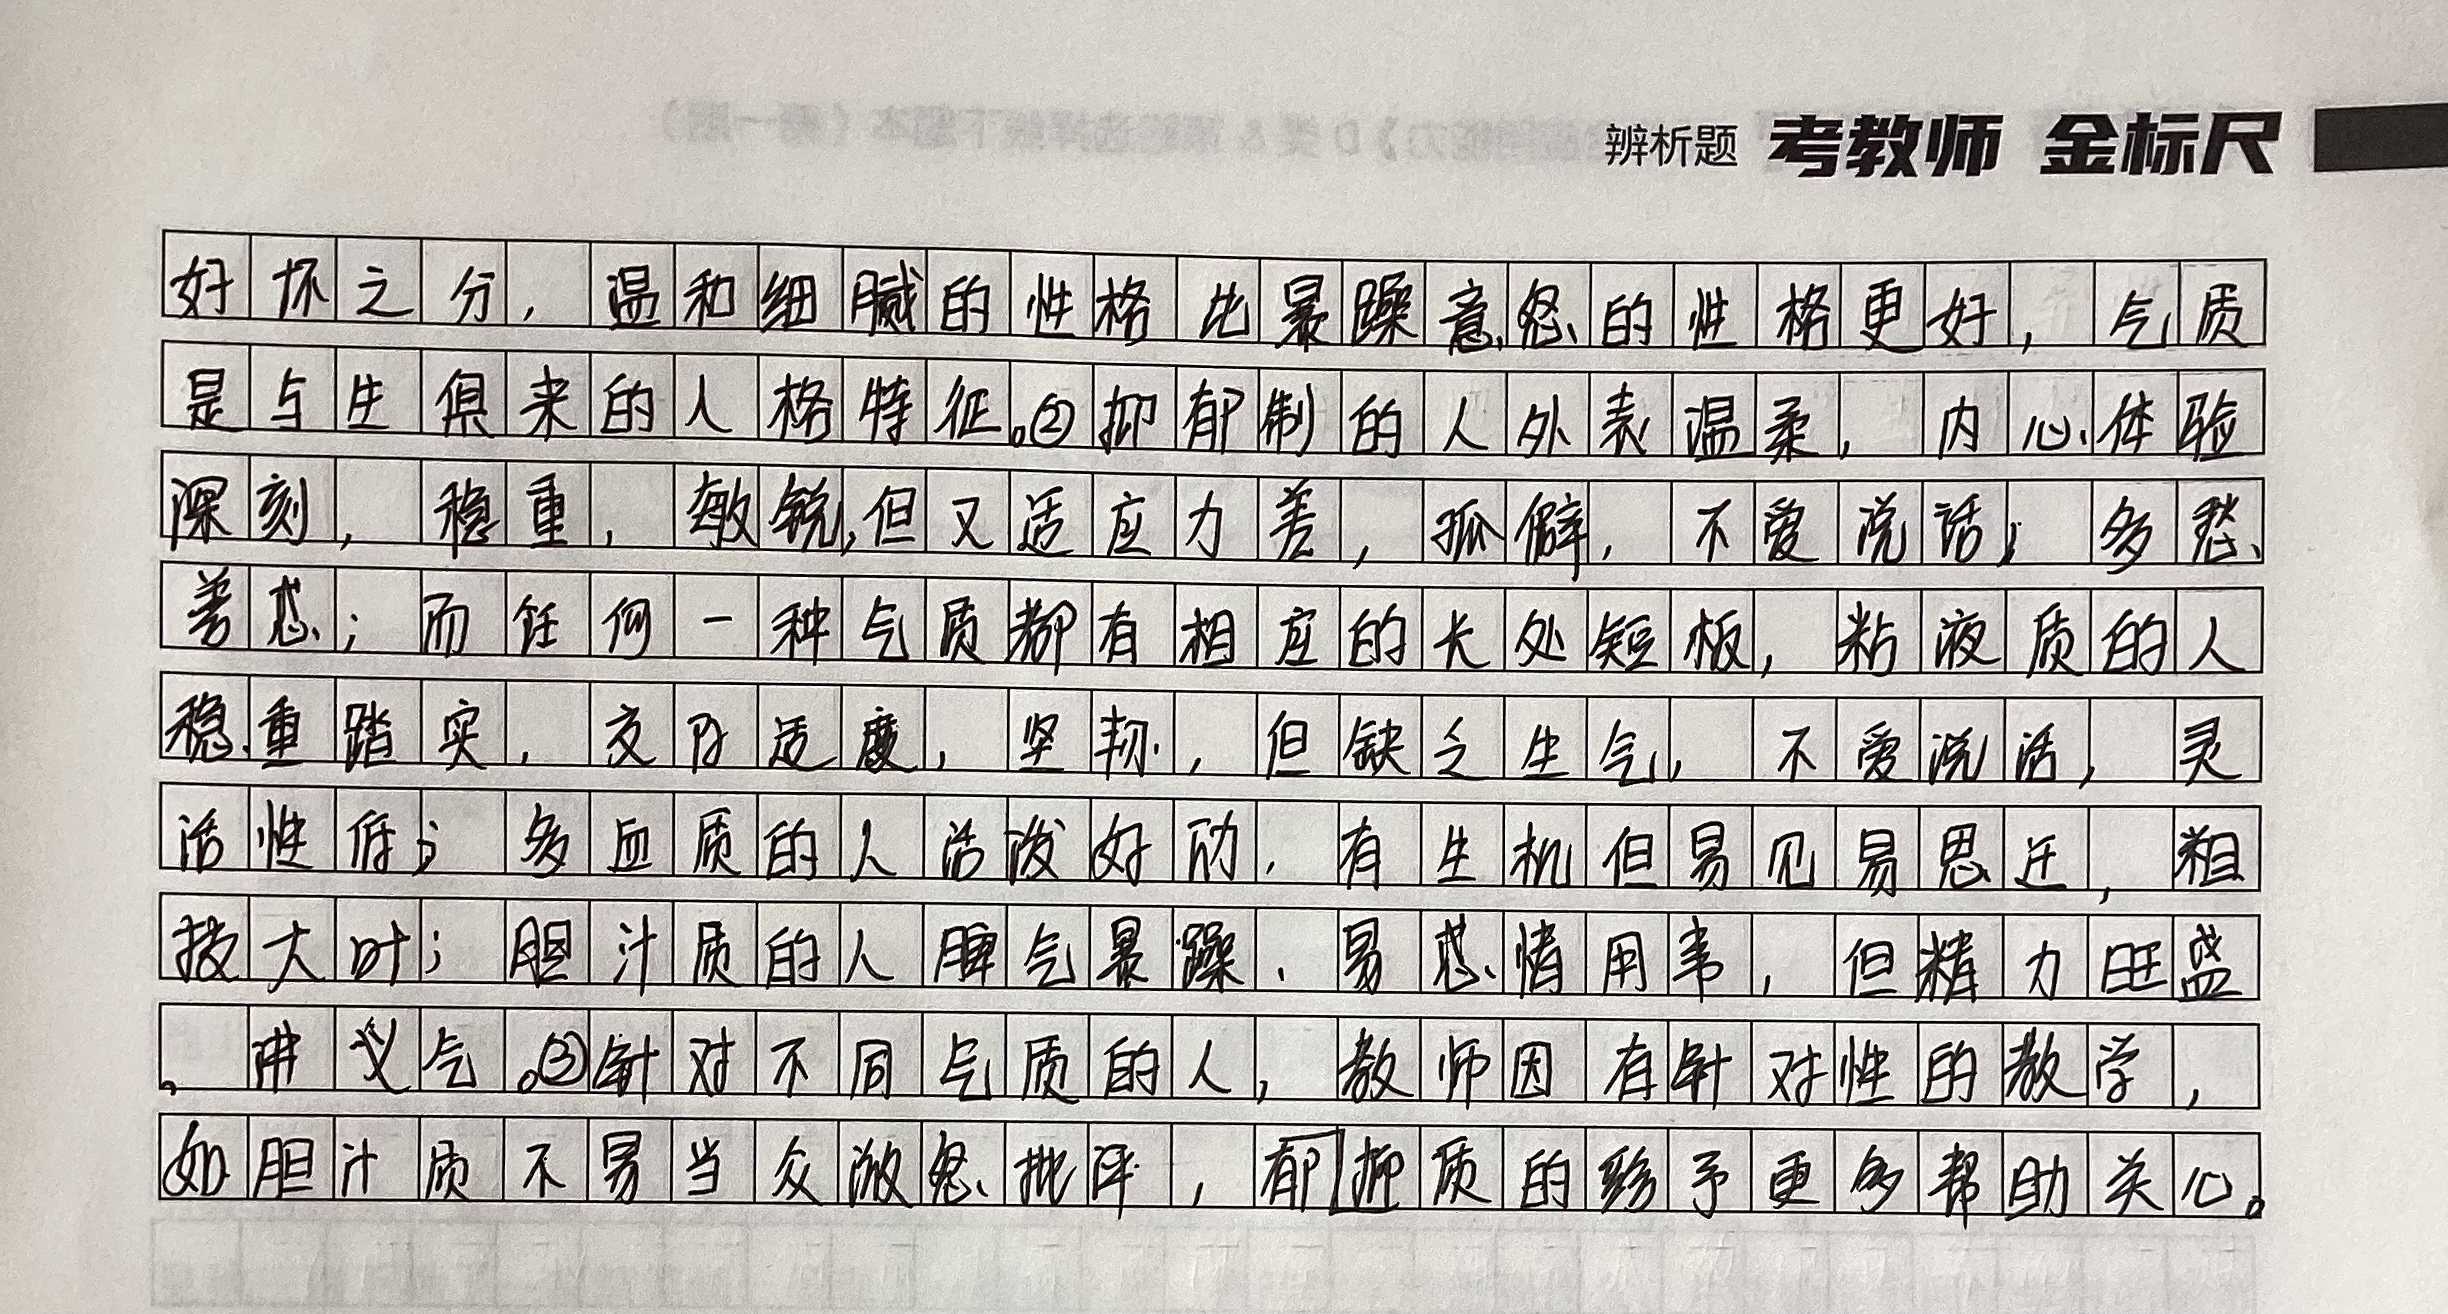 辨析题 考教师 金标尺
好坏之分,温和细腻的性格比暴躁意怒的性格更好,气质
是与生俱来的人格特征。②抑郁制的人外表温柔,内心体验
深刻,稳重,敏锐,但又适应力差,孤僻,不爱说话;多愁
善感;而任何一种气质都有相应的长处短板,粘液质的人
稳重踏实,交际适度,坚韧,但缺乏生气,不爱说话,灵
活性低;多血质的人活泼好动,有生机但易见易思迁,粗
枝大叶;胆汁质的人脾气暴躁、易感情用事,但精力旺盛
,讲义气。③针对不同气质的人,教师因有针对性的教学,
如胆汁质不易当众激怒批评,郁抑质的给予更多帮助关心。